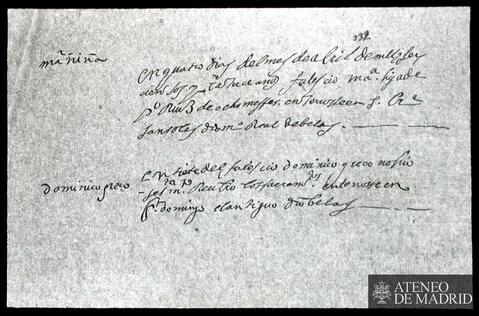 332
maria niña
en quatro dias del mes de abril de mill y seis
cientos y catorce años falescio mª. hija de
de ocho messes. enterrose en S.
domº Real de belas.
dominico greco
en siete del falescio dominico greco no hizo
testamº. Recibio los sacramtos. enterrose en
Sto. domingo el antiguo dio belas
ATENEO
DE MADRID